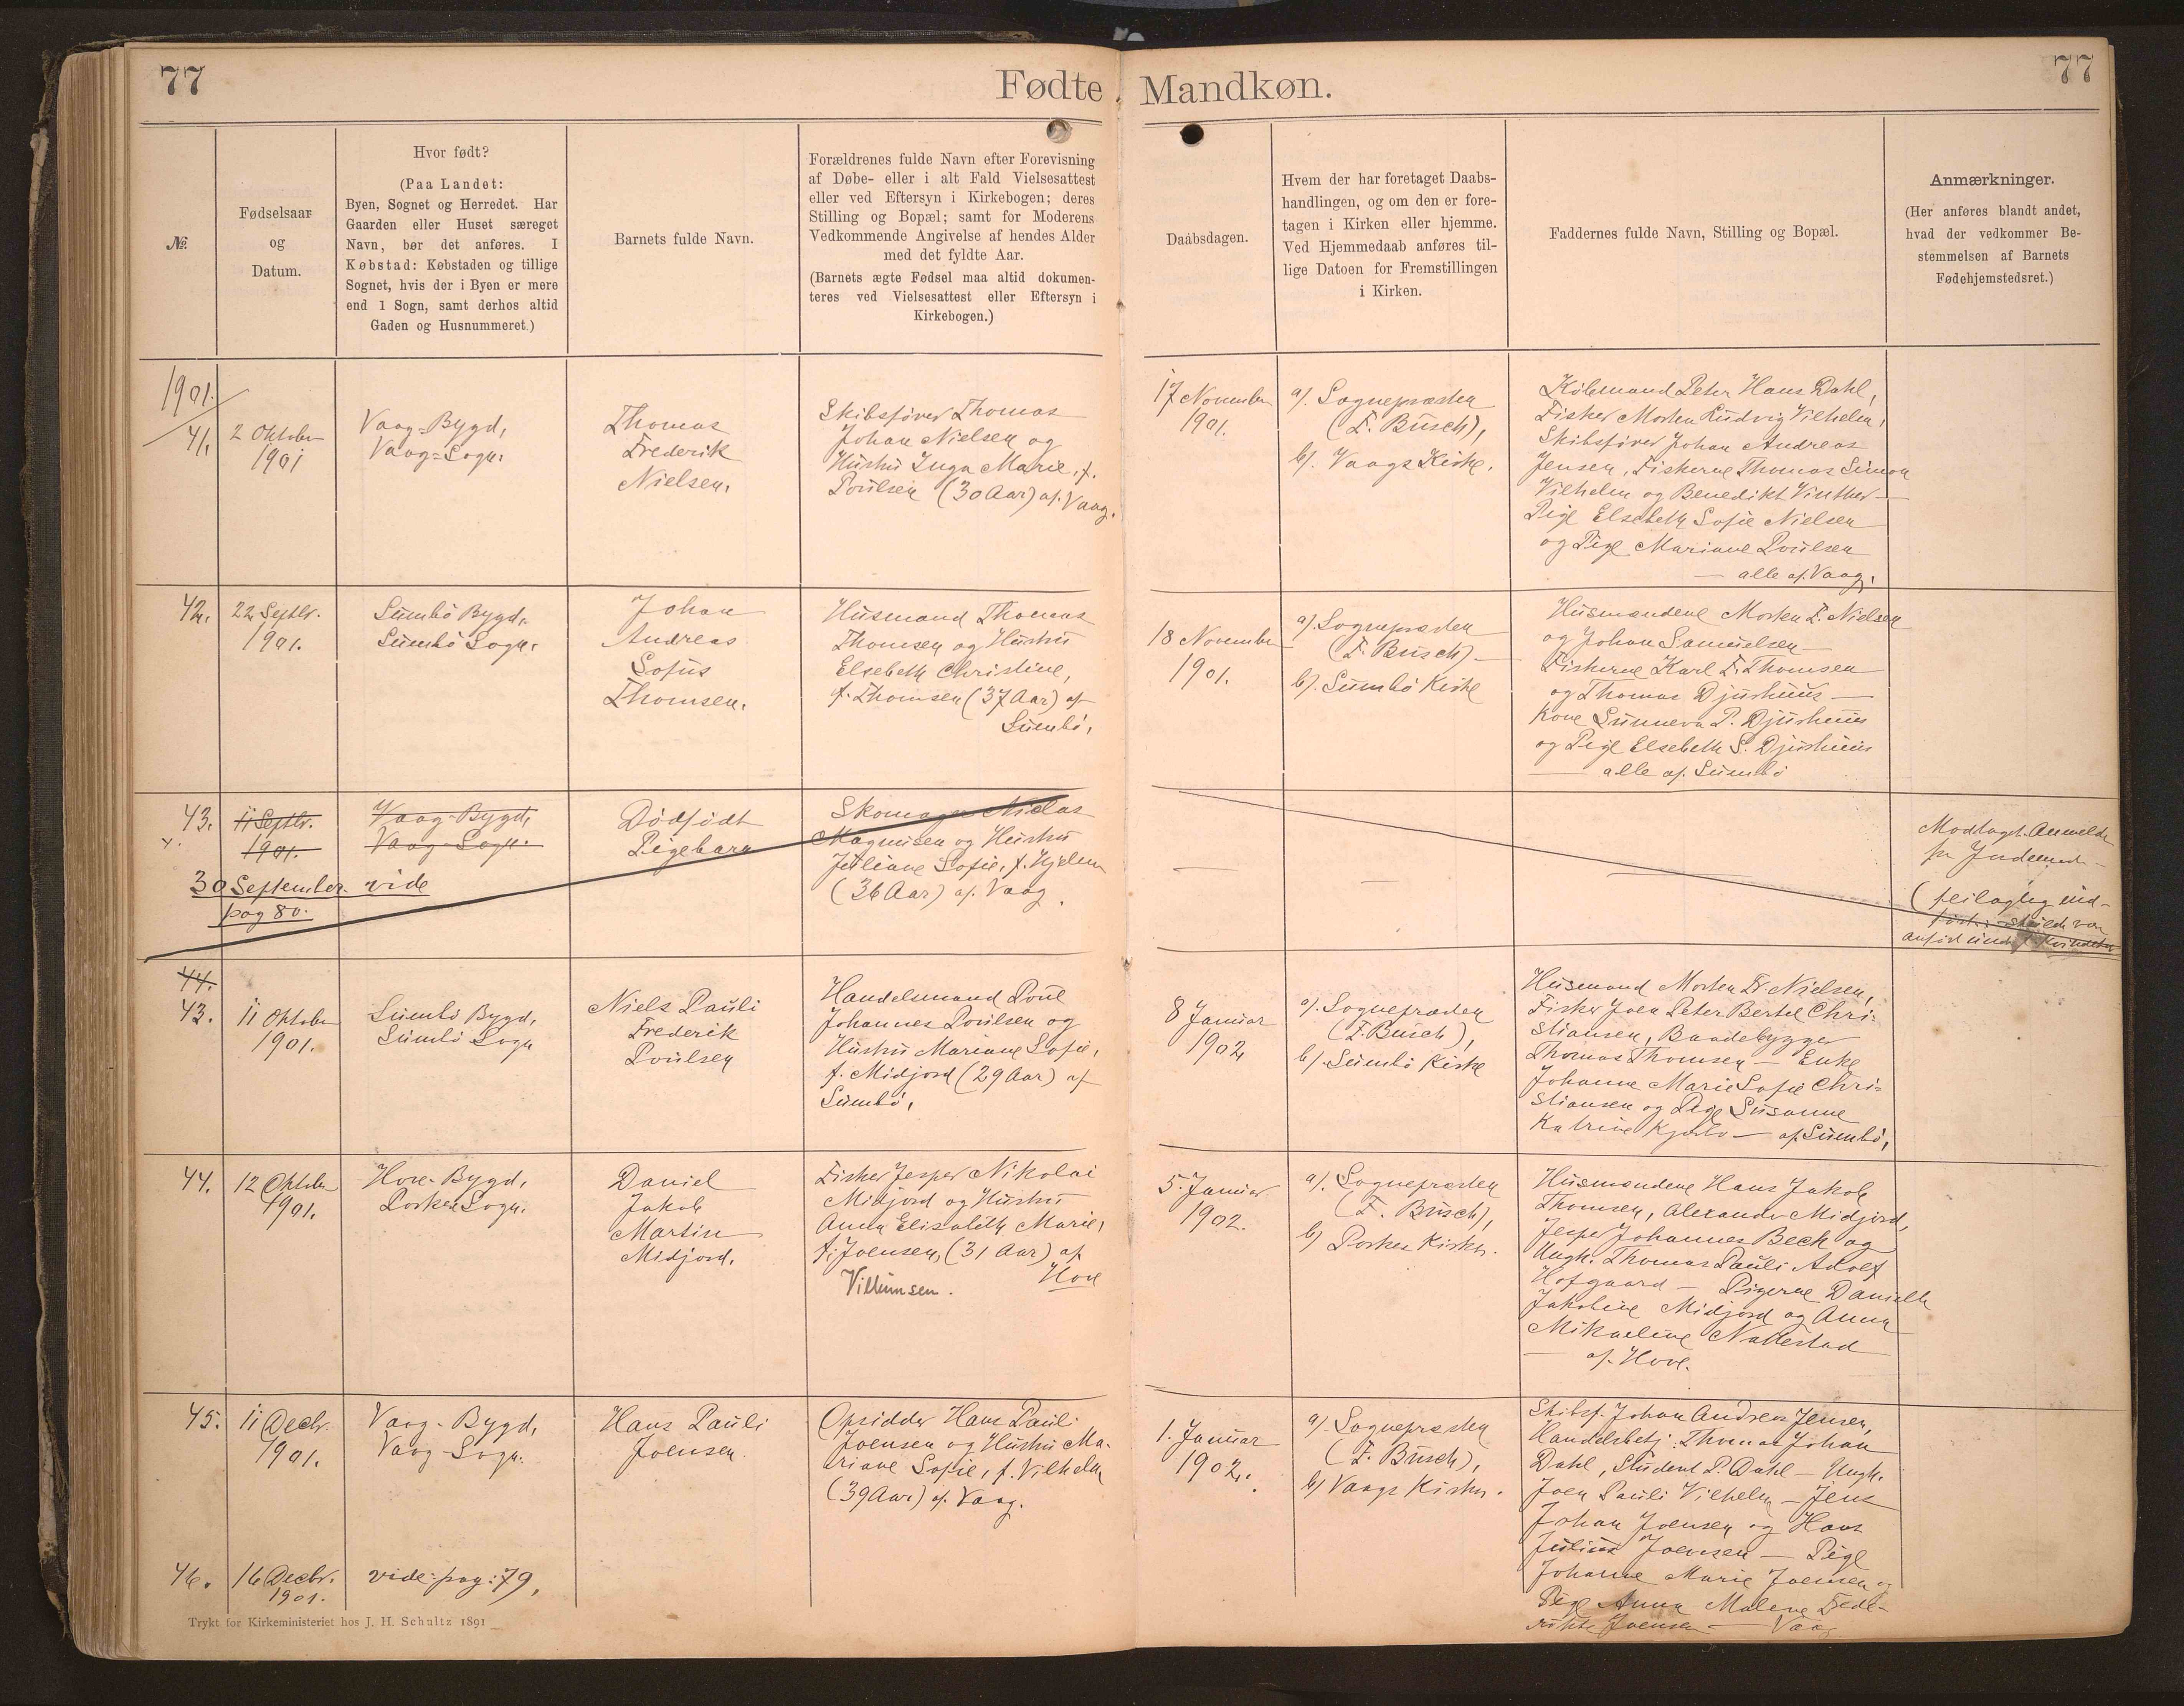 77
Fødte Mandkøn.
77
№.
Fødselsaar
og
Datum.
Hvor født?
(Paa Landet:
Byen, Sognet og Herredet. Har
Gaarden eller Huset særeget
Navn, bør det anføres. I
Købstad: Købstaden og tillige
Sognet, hvis der i Byen er mere
end 1 Sogn, samt derhos altid
Gaden og Husnummeret.)
Barnets fulde Navn.
Forældrenes fulde Navn efter Forevisning
af Døbe- eller i alt Fald Vielsesattest
eller ved Eftersyn i Kirkebogen; deres
Stilling og Bopæl; samt for Moderens
Vedkommende Angivelse af hendes Alder
med det fyldte Aar.
(Barnets ægte Fødsel maa altid dokumen-
teres ved Vielsesattest eller Eftersyn i
Kirkebogen.)
Daabsdagen.
Hvem der har foretaget Daabs-
handlingen, og om den er fore-
tagen i Kirken eller hjemme.
Ved Hjemmedaab anføres til-
lige Datoen for Fremstillingen
i Kirken.
Faddernes fulde Navn, Stilling og Bopæl.
Anmærkninger.
(Her anføres blandt andet,
hvad der vedkommer Be-
stemmelsen af Barnets
Fødehjemstedsret.)
1901.
41.
2 Oktober
1901
Vaag-Bygd,
Vaag-Sogn.
Thomas
Frederik
Nielsen.
Skibsfører Thomas
Johan Nielsen og
Hustru Inga Marie, f.
Poulsen (30 Aar) af Vaag.
17 November
1901.
a). Sognepræsten
(F. Busch),
b). Vaags Kirke.
Købmand Peter Hans Dahl,
Fisker Morten Ludvig Vilhelm,
Skibsfører Johan Andreas
Jensen, Fiskerne Thomas Simon
Vilhelm og Benedikt Vinther —
Pige Elsebeth Sofie Nielsen
og Pige Mariane Poulsen
— alle af Vaag.
42.
22 Septbr.
1901.
Sumbø Bygd,
Sumbø Sogn.
Johan
Andreas
Sofus
Thomsen.
Husmand Thomas
Thomsen og Hustru
Elsebeth Christine,
f. Thomsen (37 Aar) af
Sumbø.
18 November
1901.
a). Sognepræsten
(F. Busch) —
b). Sumbø Kirke
Husmændene Morten F. Nielsen
og Johan Samuelsen —
Fiskerne Karl F. Thomsen
og Thomas Djurhuus —
Kone Sunneva P. Djurhuus
og Pige Elsebeth S. Djurhuus
— alle af Sumbø
43.
11 Septbr.
1901.
Vaag-Bygd,
Vaag-Sogn.
30 September vide
pag 80.
Dødfødt
Pigebarn
Skomager Niclas
Magnusen og Hustru
Juliane Sofie, f. Hjelm
(36 Aar) af Vaag.
Modtaget Anmeld
(feilagtig ind-
44.
43.
11 Oktober
1901.
Sumbø Bygd,
Sumbø Sogn
Niels Pauli
Frederik
Poulsen
Handelsmand Poul
Johannes Poulsen og
Hustru Mariane Sofie,
f. Midjord (29 Aar) af
Sumbø.
8 Januar
1902
a). Sognepræsten
(F. Busch),
b). Sumbø Kirke
Husmand Morten F. Nielsen,
Fisker Joen Peter Bertel Chri-
stiansen, Baadebygger
Thomas Thomsen — Enke
Johanne Marie Sofie Chri-
stiansen og Pige Susanne
Katrine Kjærbo — af Sumbø.
44.
12 Oktober
1901.
Hove-Bygd,
Porkeri Sogn.
Daniel
Jakob
Martin
Midjord.
Fisker Jesper Nikolai
Midjord og Hustru
Anna Elisabeth Marie,
f. Joensen, (31 Aar) af
Hove
Villumsen.
5. Januar
1902.
a). Sognepræsten
(F. Busch),
b) Porkeri Kirke.
Husmændene Hans Jakob
Thomsen, Alexander Midjord,
Jesper Johannes Bech og
Ungk. Thomas Pauli Adolf
Hofgaard — Pigerne Danielle
Jakobine Midjord og Anna
Mikaeline Nattestad
— af Hove.
45.
11 Decbr.
1901.
Vaag-Bygd,
Vaag-Sogn.
Hans Pauli
Joensen.
Opsidder Hans Pauli
Joensen og Hustru Ma-
riane Sofie, f. Vilhelm
(39 Aar) af Vaag.
1. Januar
1902.
a). Sognepræsten
(F. Busch),
b) Vaags Kirke.
Skibsf. Johan Andreas Jensen,
Handelsbetj. Thomas Johan
Dahl, Student P. Dahl — Ungk.
Joen Pauli Vilhelm — Jens
Johan Joensen og Hans
Julius Joensen — Pige
Johanne Marie Joensen og
Pige Anna Malene Fede-
rikke Joensen — Vaag
46.
16 Decbr.
1901.
vide: pag: 79,
Trykt for Kirkeministeriet hos J. H. Schultz 1891